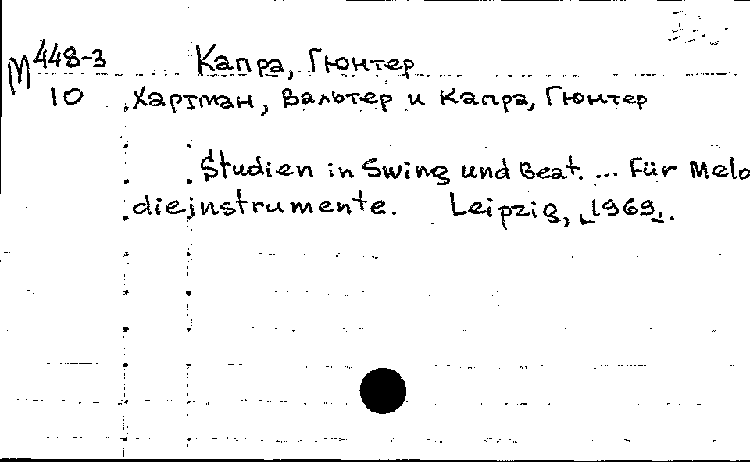 М 448-3 Капра, Гюнтер
10 Хартман, Вальтер и Капра, Гюнтер
Studien in Swing und Beat. ... Für Melo
dieinstrumente. Leipzig, 1969.